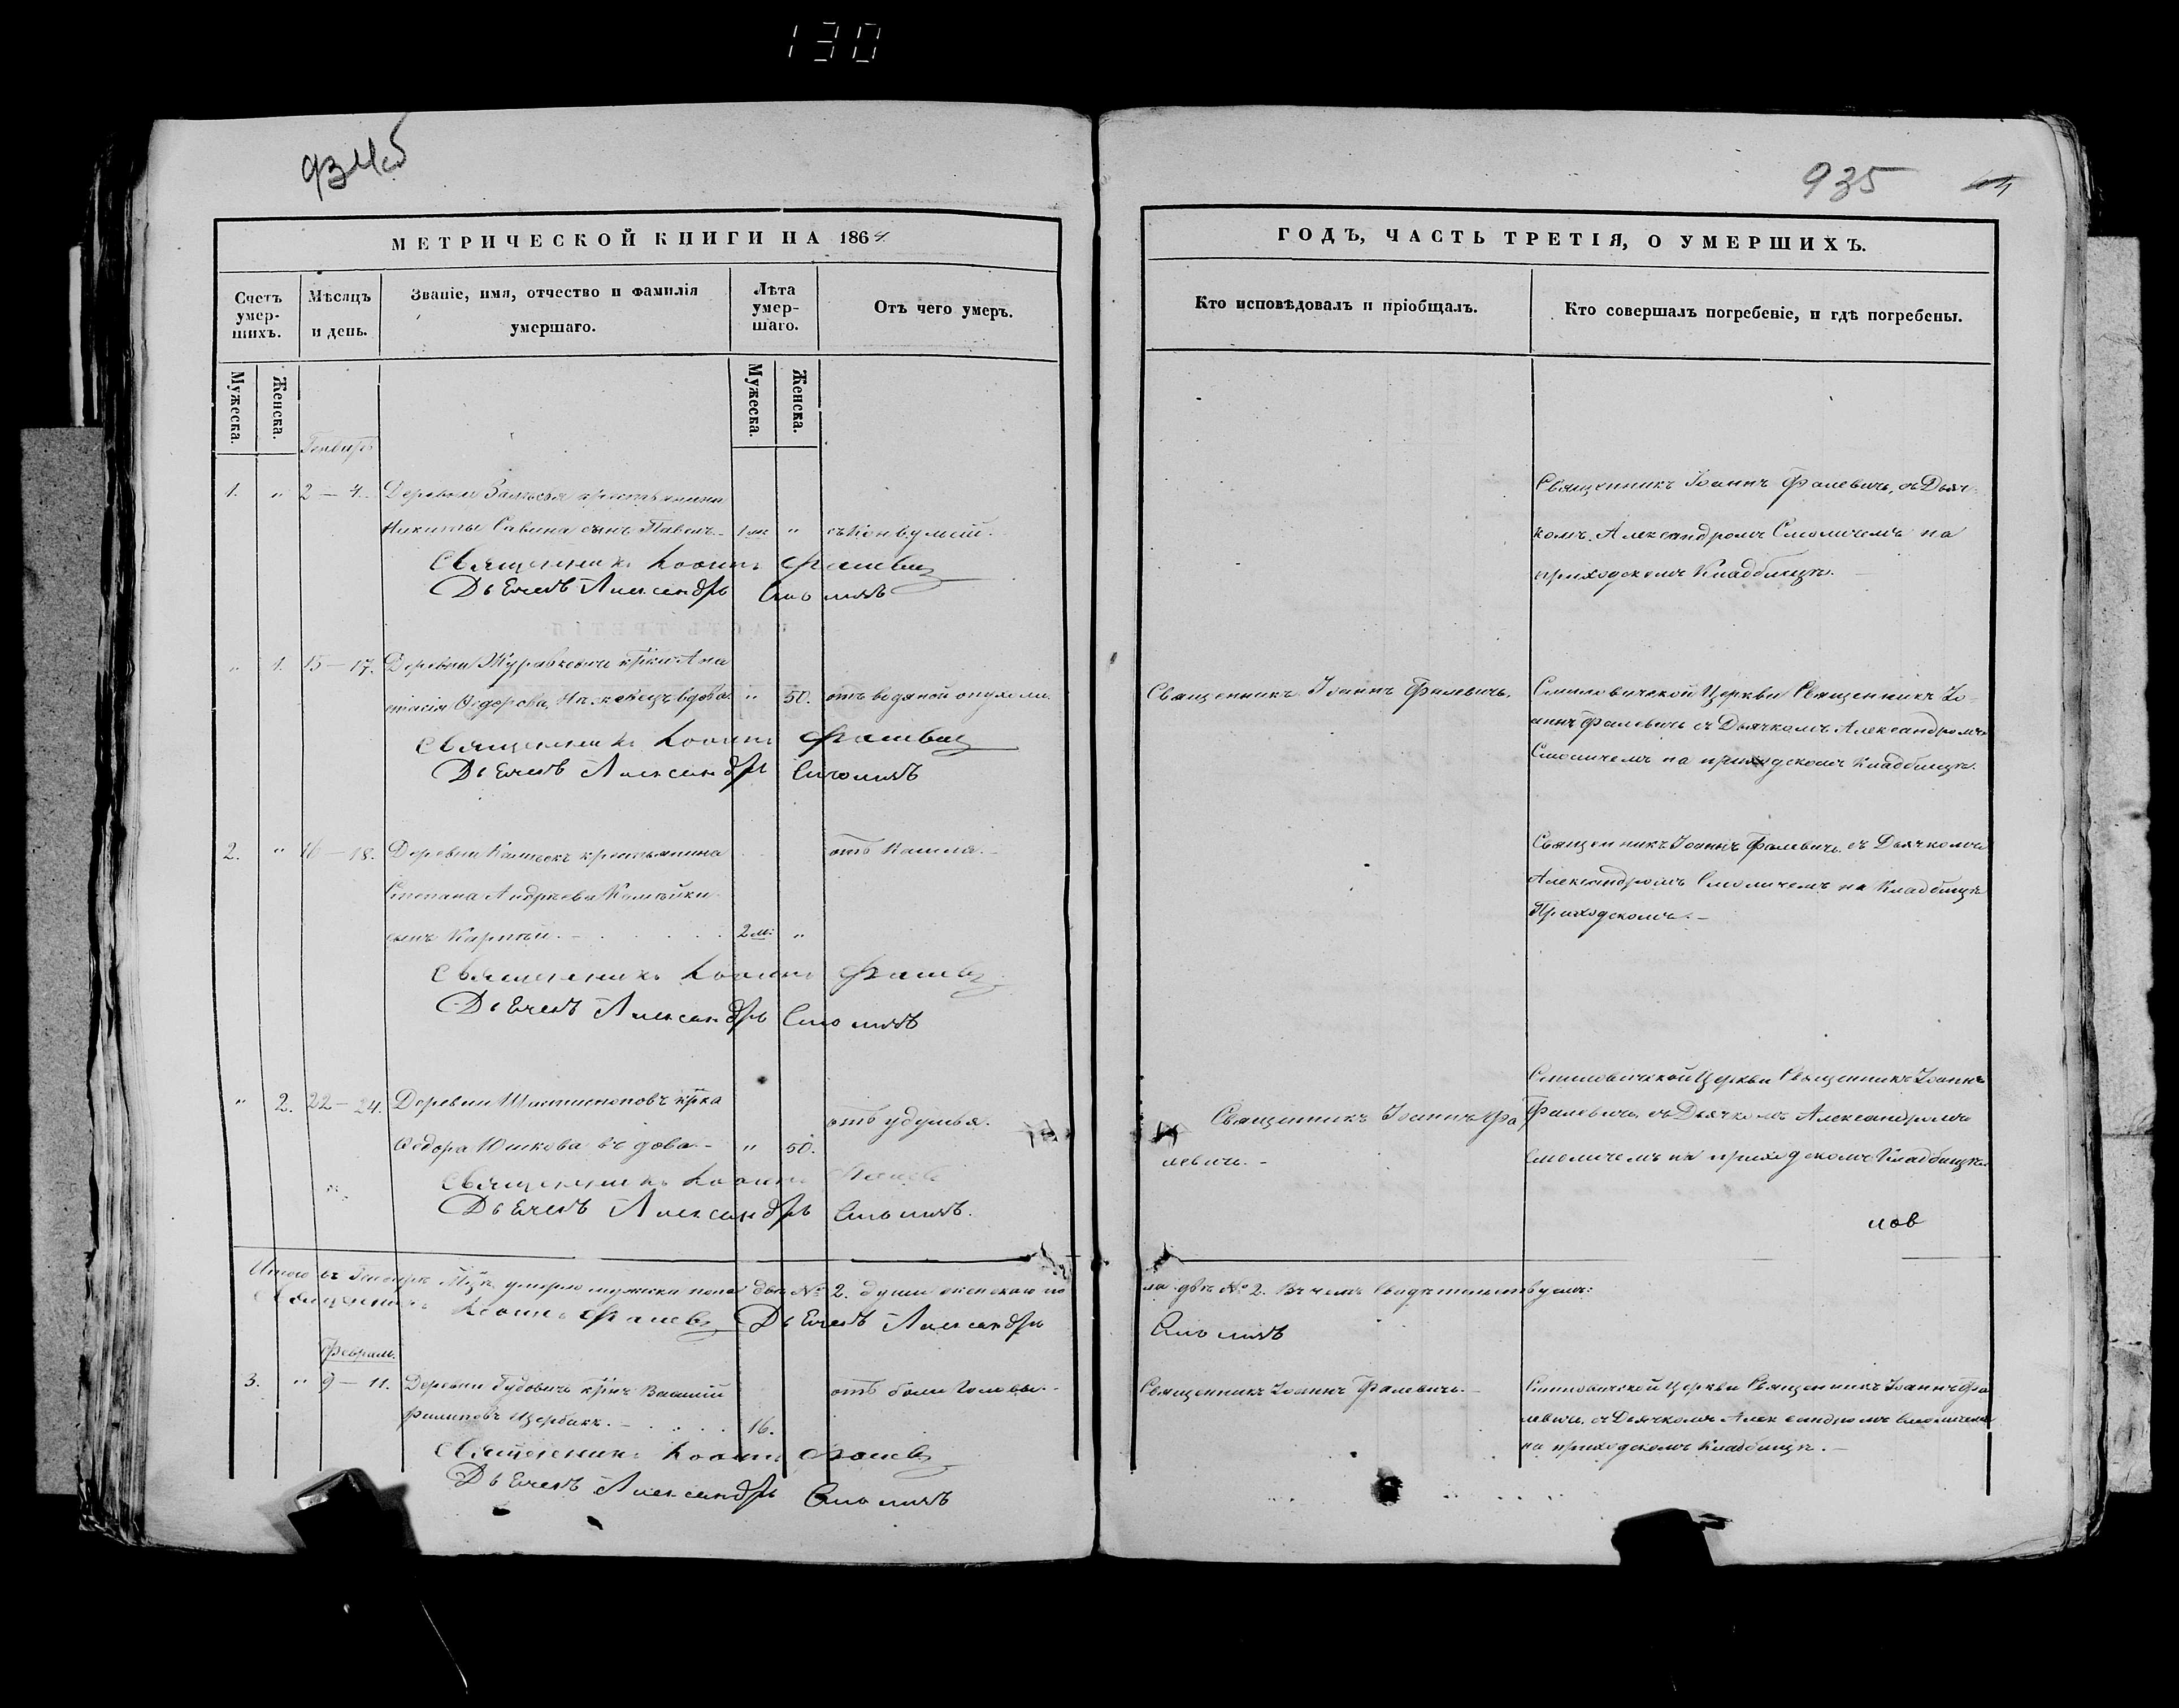 130
934об
935
МЕТРИЧЕСКОЙ КНИГИ НА 1864
ГОДЪ, ЧАСТЬ ТРЕТІЯ, О УМЕРШИХЪ.
Счетъ умер-
шихъ.
Мѣсяцъ
и день.
Званіе, имя, отчество и фамилія
умершаго.
Лѣта
умер-
шаго.
Отъ чего умеръ.
Кто исповѣдовалъ и пріобщалъ.
Кто совершалъ погребеніе, и гдѣ погребены.
Мужеска.
Женска.
Мужеска.
Женска.
Генварь
1. " 2 — 4. Деревни крестьянина
Никиты Савина сынъ Павелъ " съ конвульсій.
Священникъ Іоаннъ Фалевичъ, съ Дьяч-
комъ Александромъ Смоличемъ на
приходскомъ Кладбищѣ.
Священникъ Іоаннъ Фалевич
Дьячекъ Александръ Смоличъ
" 1. 15 — 17. Деревни Журавковичи крѣка Ана
стасія Ѳедорова, вдова. " 50. отъ водяной опухоли.
Священникъ Іоаннъ Фалевичъ.
Смиловичской Церкви Священникъ Іо-
аннъ Фалевичъ съ Дьячкомъ Александромъ
Смоличемъ на приходскомъ Кладбищѣ.
Священникъ Іоаннъ Фалевич
Дьячекъ Александръ Смоличъ
2. " 16 — 18. Деревни крестьянина отъ Кашля.
Степана Андреева
сынъ 2 м: "
Священникъ Іоаннъ Фалевичъ съ Дьячкомъ
Александромъ Смоличемъ на Кладбищѣ
Приходскомъ.
Священникъ Іоаннъ Фалевич
Дьячекъ Александръ Смоличъ
" 2. 22 — 24. Деревни крѣка отъ удушья.
Ѳедора Юшкова вдова. " 50.
Священникъ Іоаннъ Фа
левичъ.
Смиловичской Церкви Священникъ Іоаннъ
Фалевичъ, съ Дьячкомъ Александромъ
Смоличемъ на приходскомъ Кладбищѣ.
Священникъ Іоаннъ Фалев
Дьячекъ Александръ Смоличъ.
Итого въ Генварѣ М-цѣ умерло мужска пола двѣ № 2. души женскаго по
ла двѣ № 2. Въ чемъ свидѣтельствуемъ:
Священникъ Іоаннъ Фалев Дьячекъ Александръ
Смоличъ
Февраль.
3. " 9 — 11. Деревни Гудовичъ крѣнъ Василій отъ боли Головы.
Филиповъ Щербакъ. 16.
Священникъ Іоаннъ Фалевичъ.
Смиловичской Церкви Священникъ Іоаннъ Фа
левичъ, съ Дьячкомъ Александромъ Смоличемъ
на приходскомъ Кладбищѣ.
Священникъ Іоаннъ Фалев
Дьячекъ Александръ Смоличъ